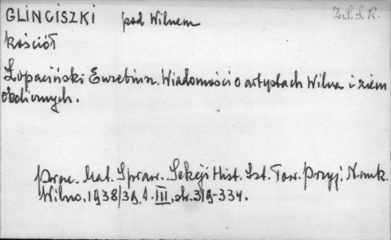 GLINCISZKI pod Wilnem Z.S.S.R.
kościół
Łopaciński Euzebiusz. Wiadomości o artystach Wilna i ziem
okolicznych.
Prac. Mat. Spraw. Sekcji Hist. Szt. Tow. Przyj. Nauk.
Wilno, 1938/39, t. III, str. 319-334.